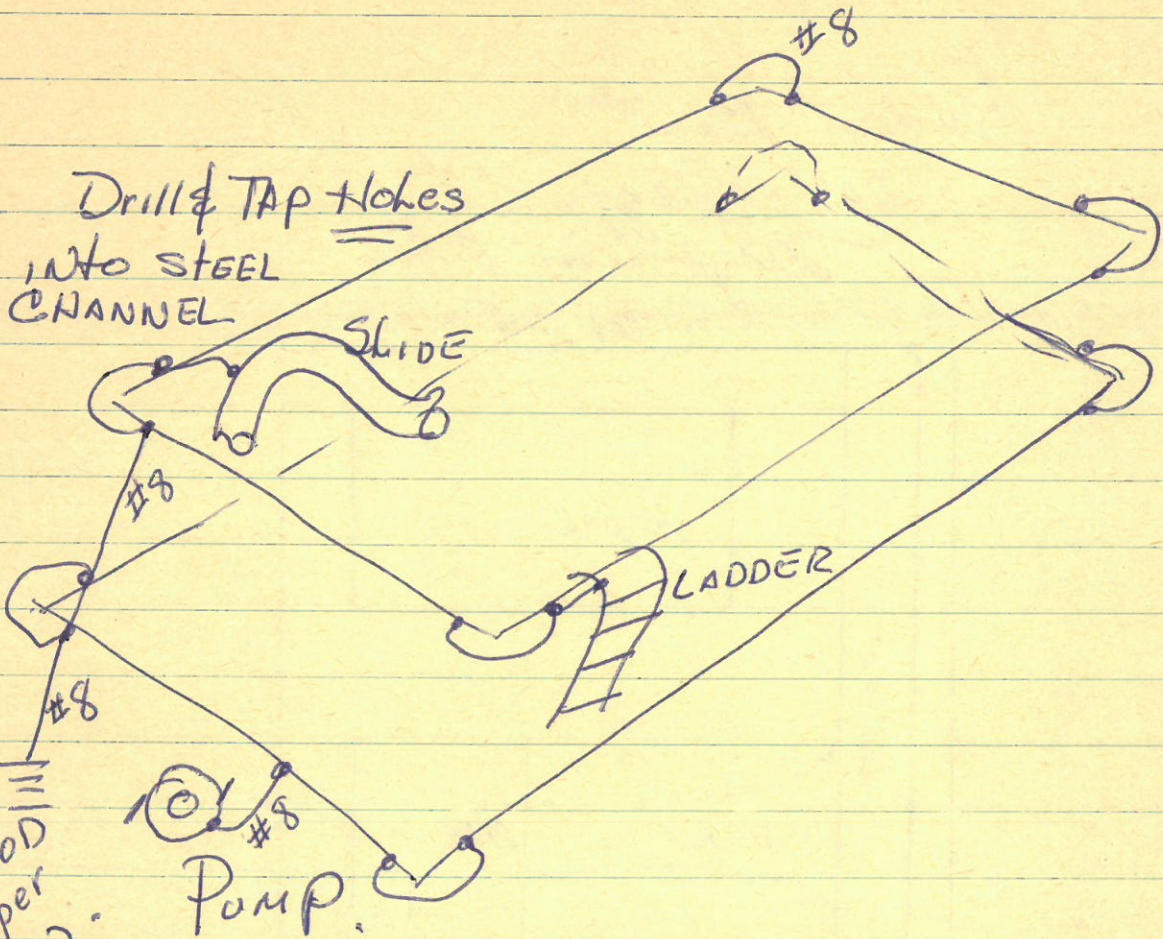 #8
Drill & TAP Holes
INto STEEL
CHANNEL
SLIDE
#8
LADDER
#8
#8
Pump.